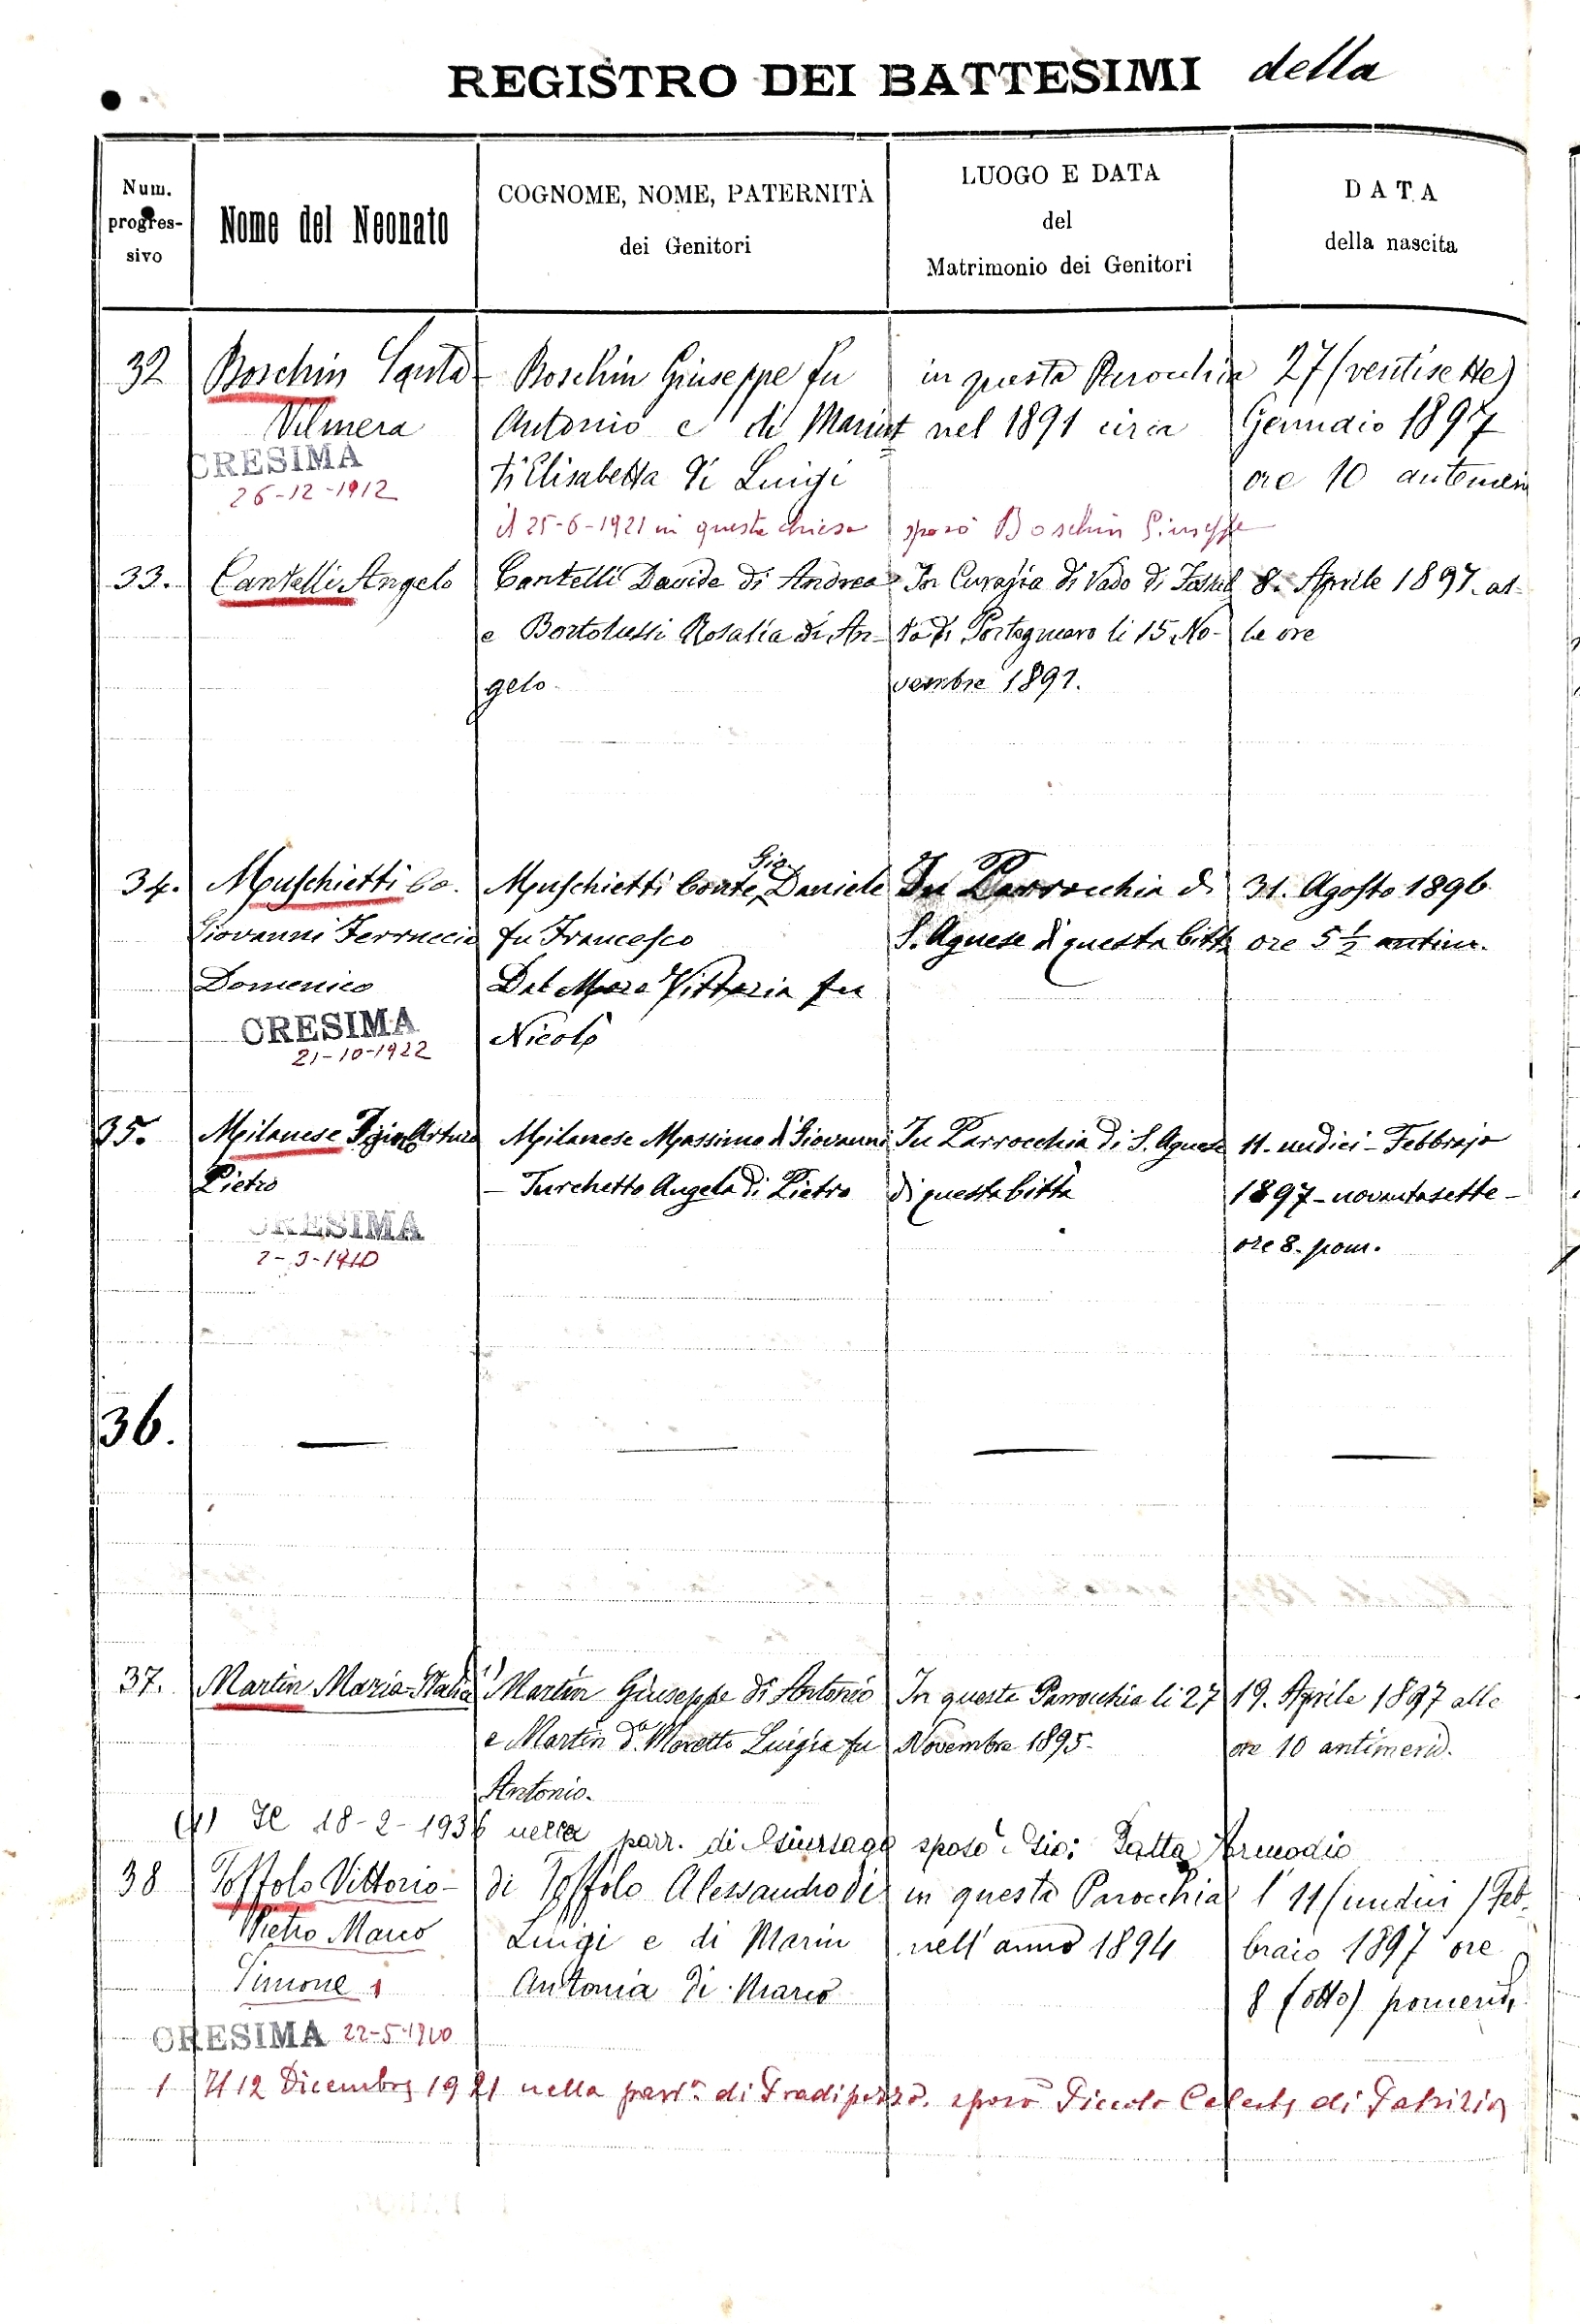 REGISTRO DEI BATTESIMI della
Num. progres-sivo
Nome del Neonato
COGNOME, NOME, PATERNITÀ
dei Genitori
LUOGO E DATA
del
Matrimonio dei Genitori
DATA
della nascita
32 Boschin Santa Boschin Giuseppe fu in questa Parocchia 27 (ventisette)
Vilmera Antonio e di Marinat nel 1891 circa Gennaio 1897
CRESIMA ti Elisabetta di Luigi ore 10 antimeri
26-12-1912
il 25-6-1921 in questa chiesa sposò Boschin Giuseppe
33. Cantelli Angelo Cantelli Davide di Andrea In Curazia di Vado di 8. Aprile 1897. al-
e Bortolussi Rosalia di An- di Portogruaro li 15 No- le ore
gelo. vembre 1891.
34. Muschietti Co. Muschietti Conte Gio. Daniele In Parrocchia di 31. Agosto 1896
Giovanni Ferruccio fu Francesco S. Agnese di questa Città ore 5 1/2 antim.
Domenico Dal Moro Vittoria fu
CRESIMA Nicolò
21-10-1922
35. Milanese Igino Arturo Milanese Massimo di Giovanni In Parrocchia di S. Agnese 11. undici - Febbrajo
Pietro - Turchetto Angela di Pietro di questa Città 1897 - novantasette -
CRESIMA ore 8. pom.
2-3-1910
36. — — — —
37. Martin Maria Italia (1) Martin Giuseppe di Antonio In questa Parrocchia li 27 19. Aprile 1897 alle
e Martin da. Moretto Luigia fu Novembre 1895. ore 10 antimerid.
Antonio.
(1) Il 18-2-1936 nella parr. di sposò Gio: Armodio
38 Toffolo Vittorio- di Toffolo Alessandro di in questa Parocchia l' 11 (undici) Feb.
Pietro Marco Luigi e di Marin nell' anno 1894 braio 1897 ore
Simone 1 Antonia di Marco 8 (otto) pomerid.
CRESIMA 22-5-1910
1 Il 12 Dicembre 1921 nella parr.a di Pradipozzo. sposò Piccolo Celeste di Patrizio